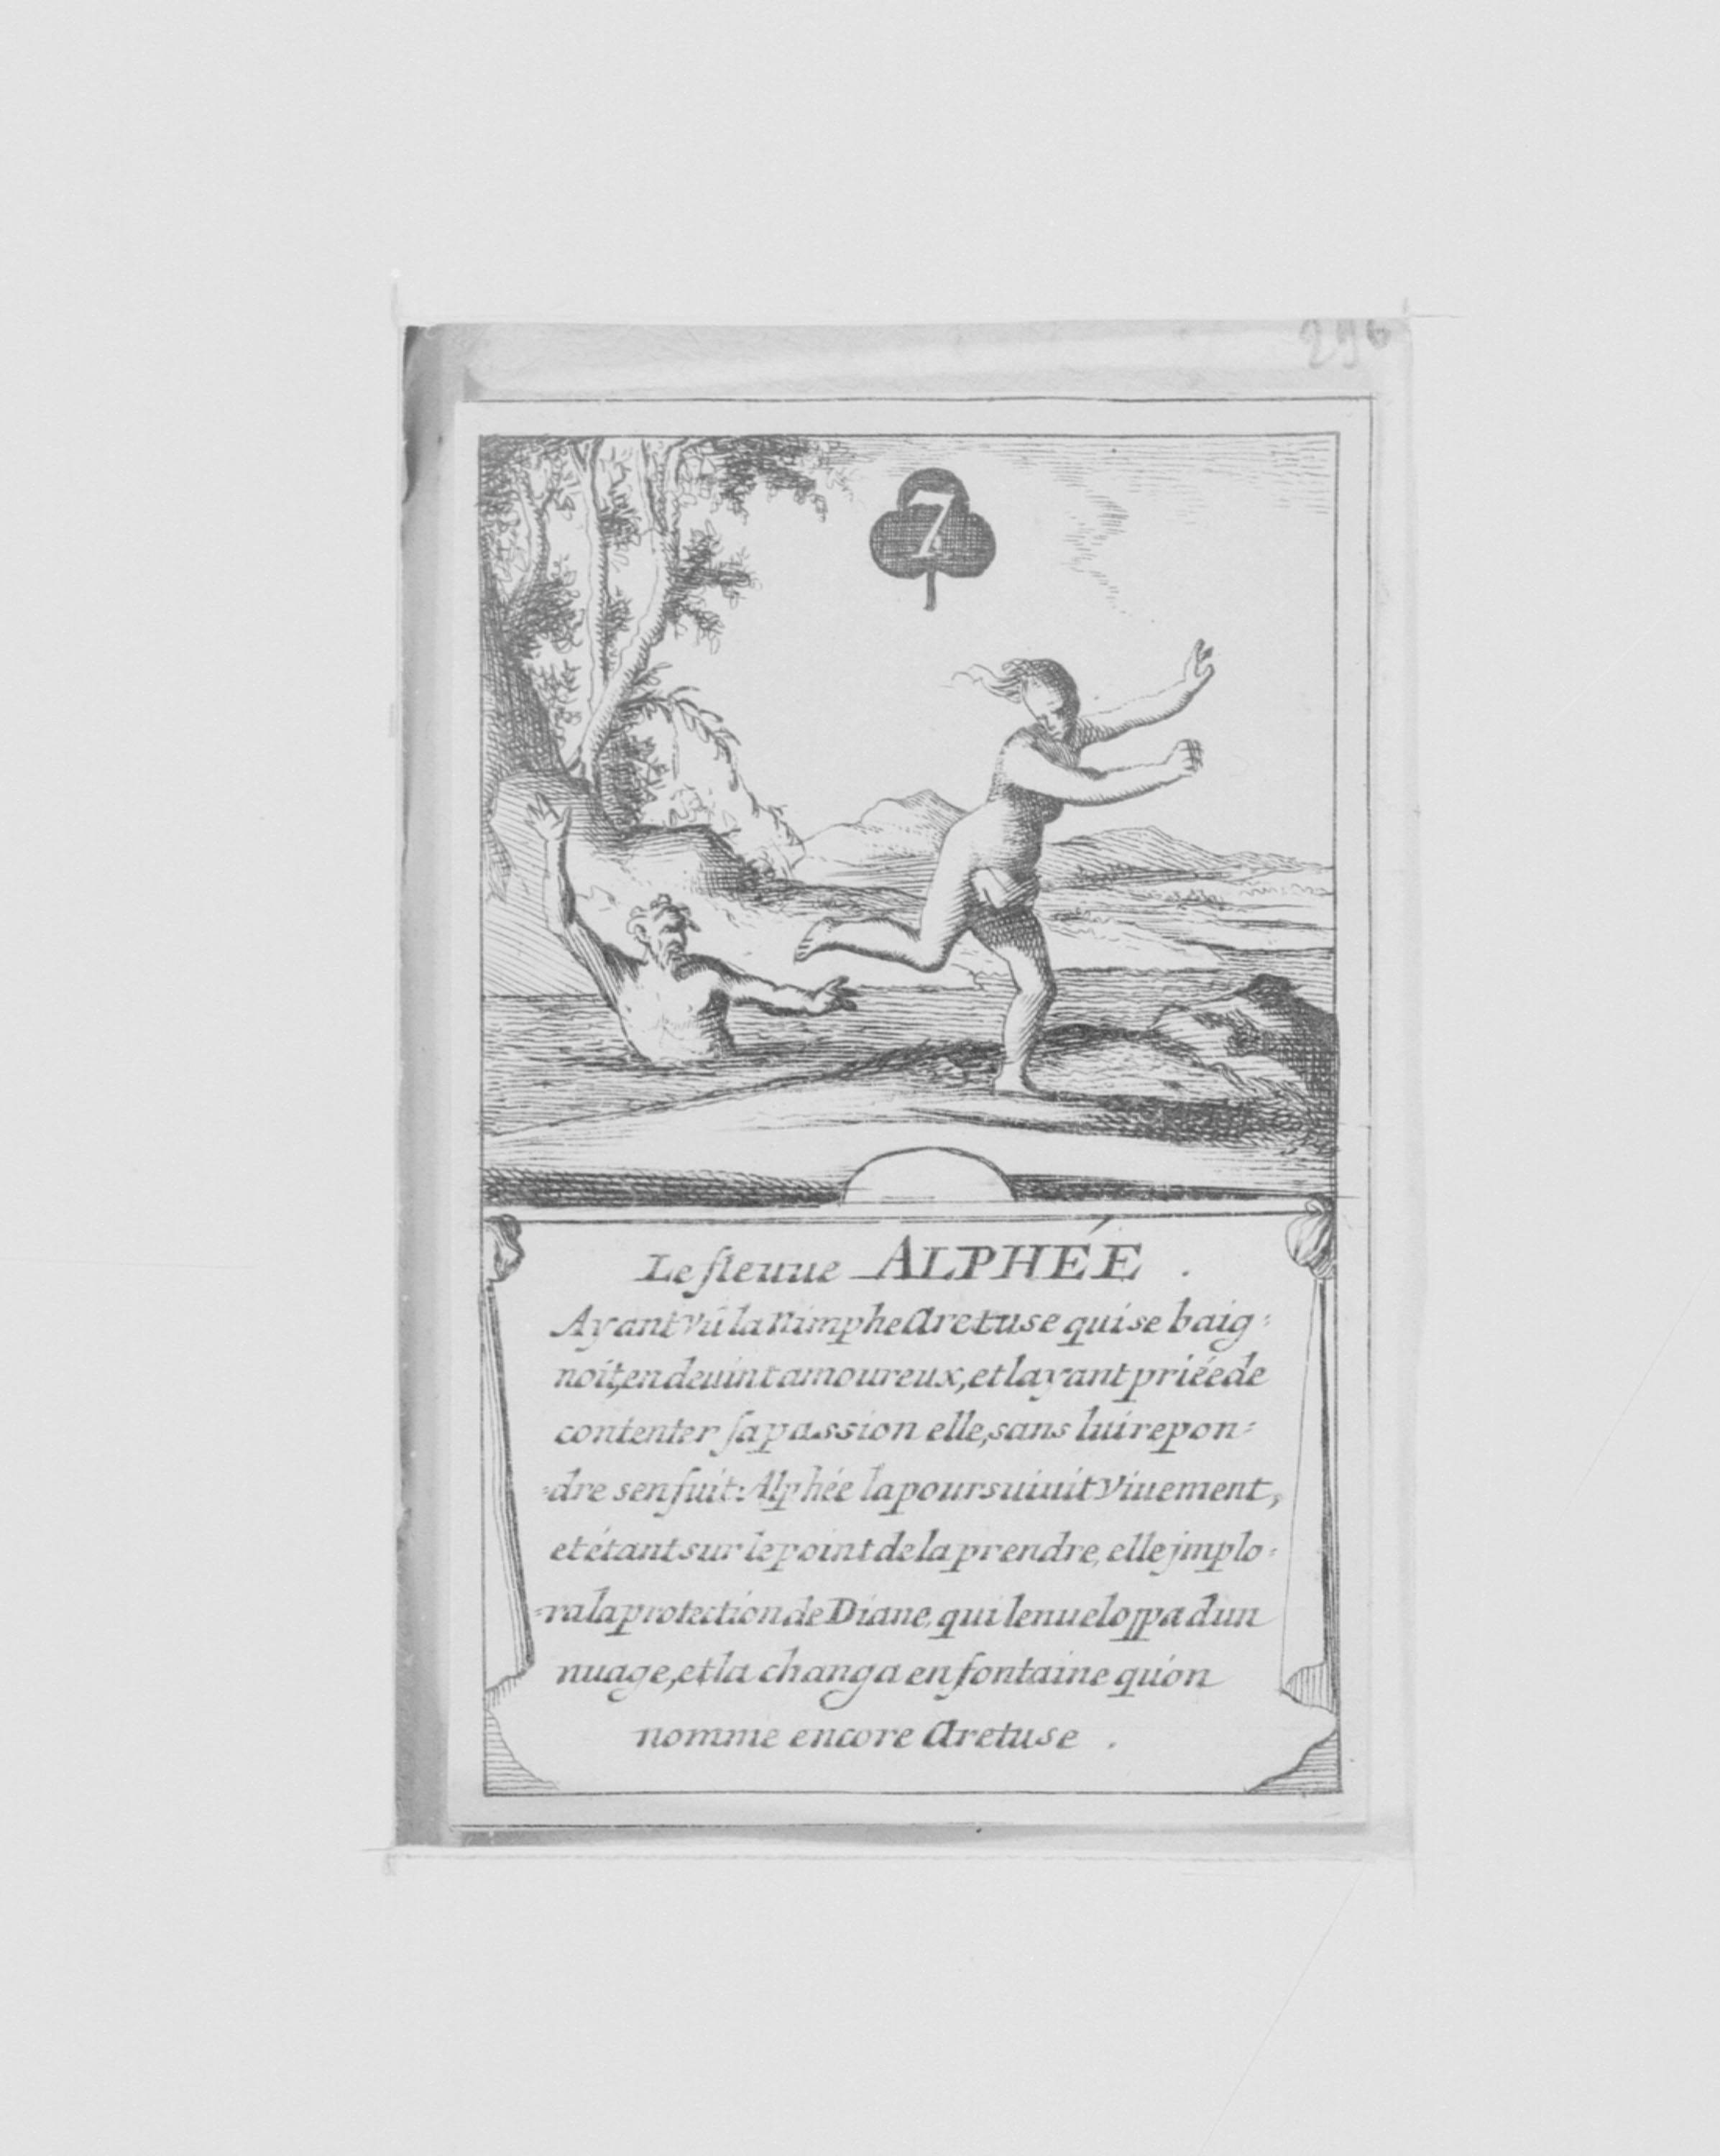 296
7
Le fleuue ALPHÉE .
Ayant vû la Nimphe Aretuse qui se baig=
noit, en deuint amoureux, et layant priée de
contenter sa passion elle, sans lui repon=
=dre senfuit: Alphée la poursuiuit viuement,
et étant sur le point de la prendre, elle jmplo=
=ra la protection de Diane, qui lenueloppa dun
nuage, et la changa en fontaine qu'on
nomme encore Aretuse .